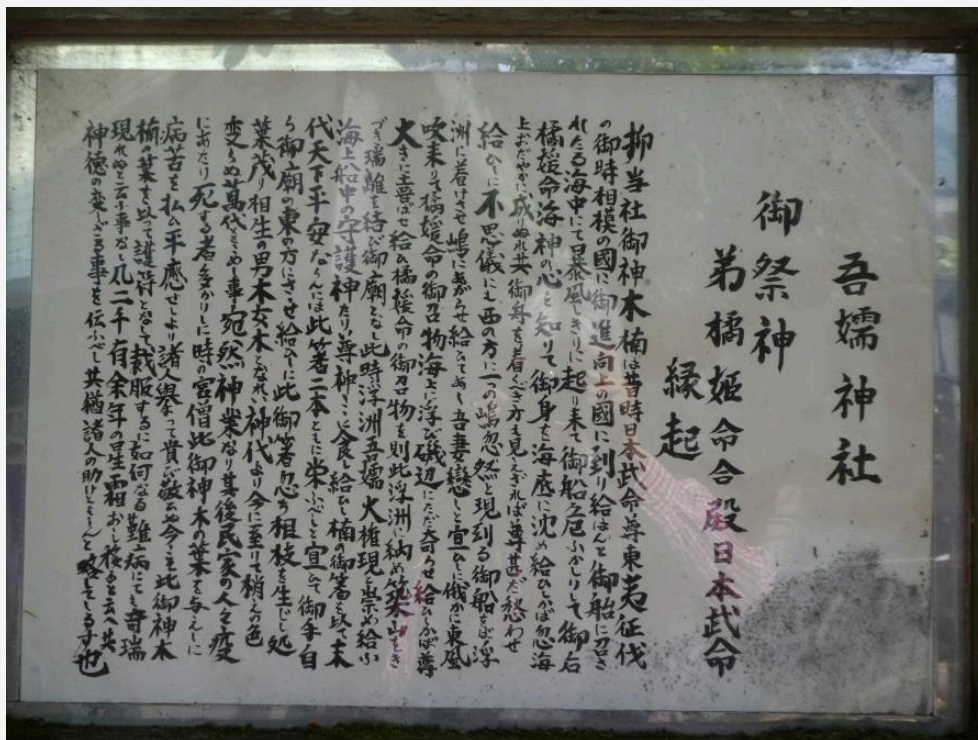 吾嬬神社
御祭神
弟橘姫命合殿日本武命
縁起
抑当社御神木楠は昔時日本武命尊東夷征伐
の御時相模の國に御進向上の國に到り給はんと御船に召さ
れたる海中にて暴風しきりに起り来て御船危ふかりして御右
橘媛命海神の心を知りて御身を海底に沈め給ひしかば忽海
上おだやかに成りぬれ共御舟を着くべき方も見えざれば尊甚だ愁わせ
給ひしに不思儀にも西の方に一つの嶋忽然と現到る御船をば浮
洲に着けさせ嶋にあがらせ給ひてあゝ吾妻戀しと宣ひしに俄かに東風
吹来りて橘媛命の御召物海上に浮び磯辺にただ寄らせ給ひしかば尊
大きに喜ばせ給ひ橘媛命の御召物を則此浮洲に納め築山をき
づき瑞離を結び御廟となし此時浮洲吾嬬大権現と崇め給ふ
海上船中の守護神たり尊神こゝに食し給ひし楠の御箸を以て末
代天下平安ならんには此箸二本ともに栄ふべしと宣ひて御手自
ら御廟の東の方にさゝせ給ひしに此御箸忽ち根枝を生じし処
葉茂り相生の男木女木となれり神代より今に至りて梢えの色
変らぬ萬代をこめし事宛然神業なり其後民家の人々疫
にあたり死する者多かりしに時の宮僧此御神木の葉を与えしに
病苦を払ひ平癒せしより諸人挙って貴び敬ひぬ今こも此御神木
楠の葉を以って護符となして裁服するに如何なる難病にても奇瑞
現れぬと云ふ事なし凡二千有余年の星霜おし移ると云へ共
神徳の変らざる事を伝ふべし其猶諸人の助けとならんと略そしるす也